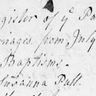 gister of yᵉ Pa
iages from July
Baptisms.
usanna Pall.